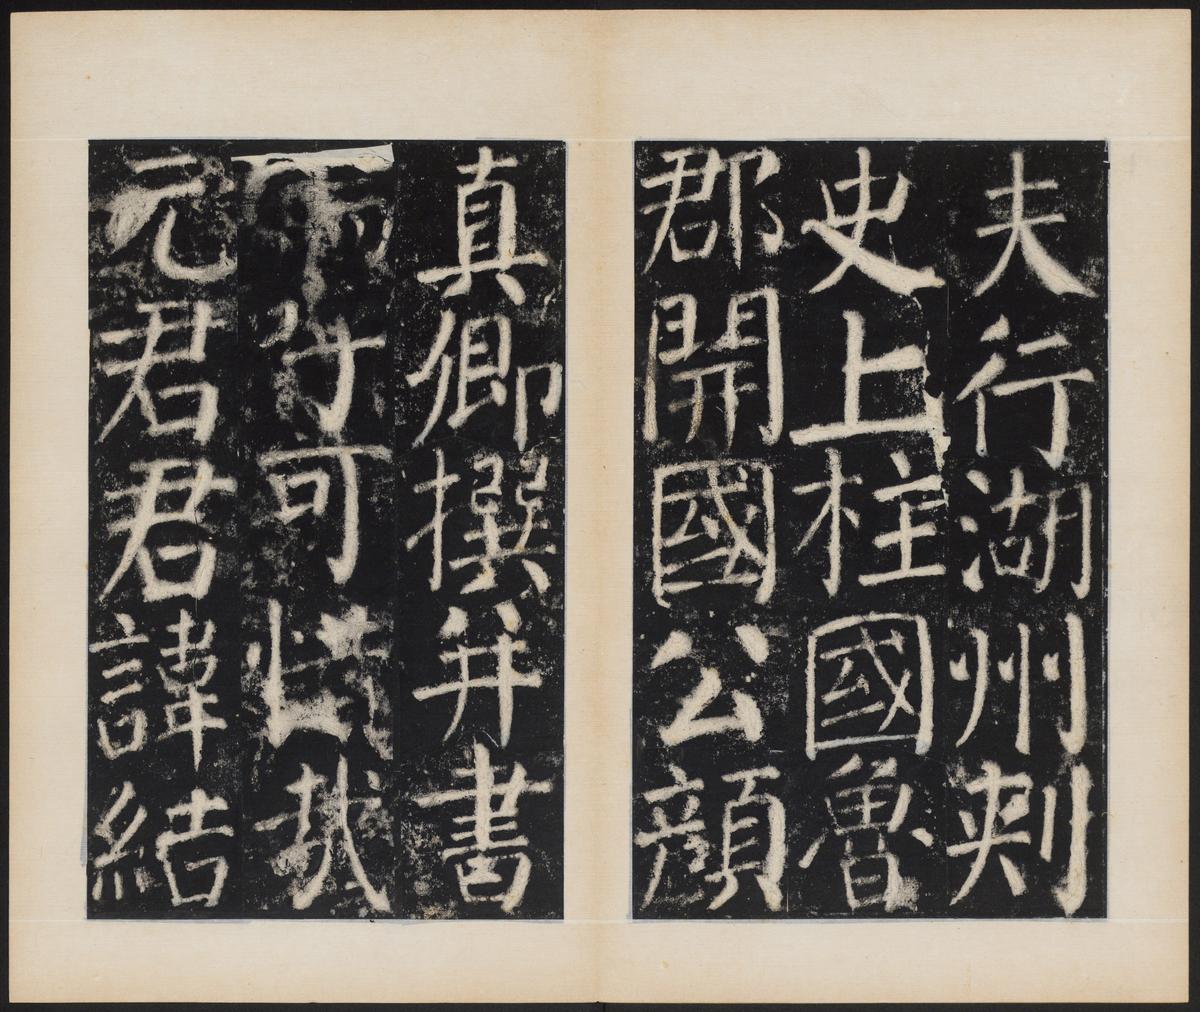 夫行湖州刾
史上柱國魯
郡開國公顏
真卿撰并書
可惜哉
元君君諱結